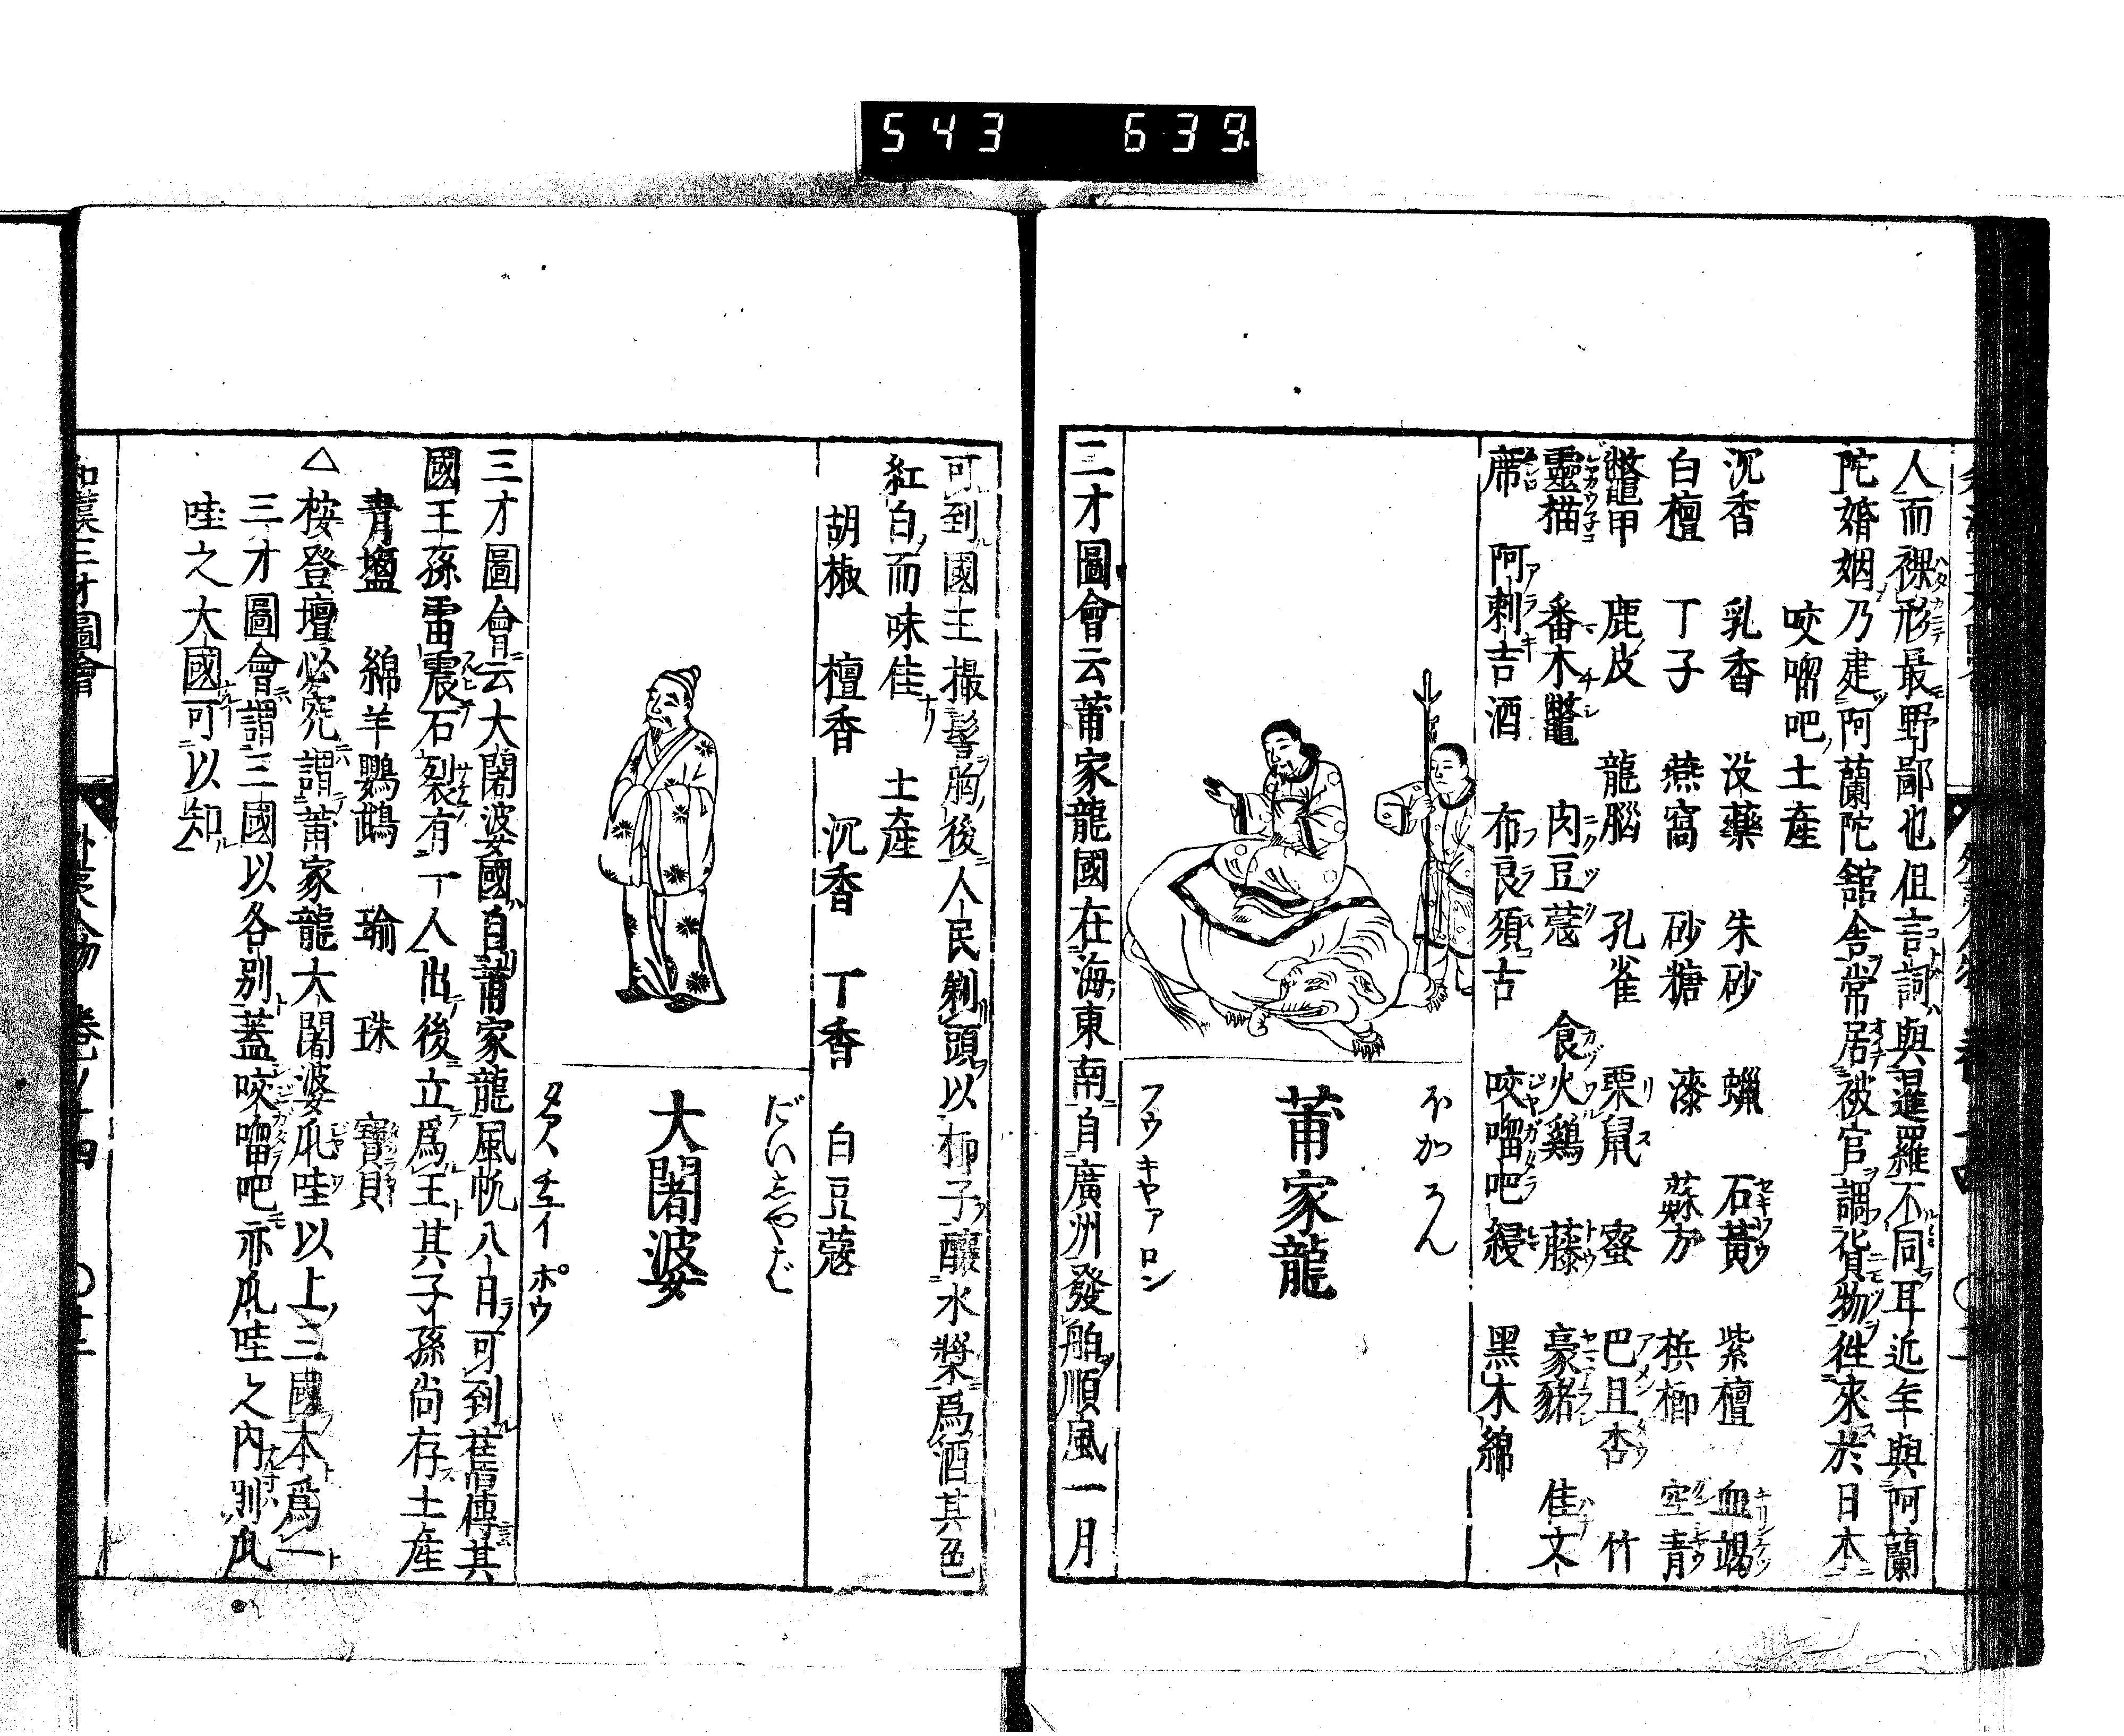 543 639
人而裸形最野鄙也但言詞與暹羅不同耳近年與阿蘭
陀婚姻乃建阿蘭陀舘舎常居被官調貨物徃來於日本
咬𠺕吧土産
沉香 乳香 没藥 朱砂 蠟 石黃 紫檀 血竭
白檀 丁子 燕窩 砂糖 漆 蘇方 梹榔 空青
鼈甲 鹿皮 龍腦 孔雀 栗鼠 蜜 巴旦杏 竹
靈猫 番木鼈 肉豆蔻 食火鷄 藤 豪豬 佳文
席 阿剌吉酒 布良須古 咬𠺕吧縵 黑木綿
ほかろん
莆家龍
フウキヤアロン
三才圖會云莆家龍國在海東南自廣州發舶順風一月
可到國王撮髻胸後人民剃頭以椰子釀水漿爲酒其色
紅白而味佳 土產
胡椒 檀香 沉香 丁香 白豆蔻
だいしやば
大闍婆
タアヽ チエイ ポウ
三才圖會云大闍婆國自莆家龍風帆八日可到舊傳其
國王孫雷震石裂有一人出後立爲王其子孫尚存土産
青鹽 綿羊 鸚鵡 瑜 珠 寶貝
△桉登壇必究謂莆家龍大闍婆爪哇以上三國本爲一
三才圖會謂三國以各別蓋咬𠺕吧亦爪哇之內則爪
哇之大國可以知
和漢三才圖會 外夷人物 卷ノ十四